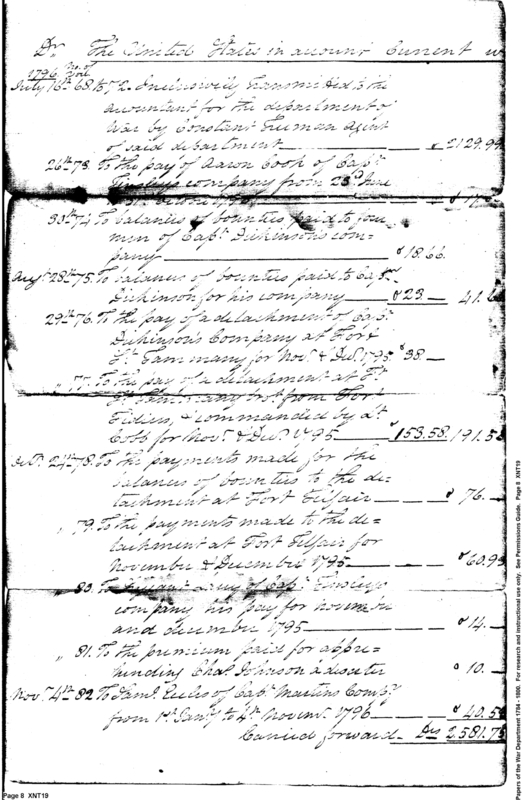 Dr. The United States in account Current w
1796 No. of
July 16th 68 to 72. Inclusively transmitted to the
accountant for the department of
War by Constant Freeman Agent
of said department $ 2129.99
26th 73. To the pay of Aaron Cook of Capt.
Tinsleys company from 23d June
30th 74 To balances of bounties paid to four
men of Capt. Dickinson's com=
pany $ 18.66.
Augt. 28th 75. To balances of bounties paid to Capt.
Dickinson for his company $ 23. — 41.6
29th 76. To the pay of a detachment of Capt.
Dickinson's Company at Fort
St. Tammany for Novr. & Decr. 1795 $ 38 —
" 77. To the pay of a detachment at Ft.
St. Tammany but from Fort
Fidius, & commanded by Lt
Cobb for Novr. & Decr. 1795 $ 153.58. 191.58
24th 78. To the payments made for the
balances of bounties to the de=
tachment at Fort Telfair $ 76. —
" 79. To the payments made to the de=
tachment at Fort Telfair for
November & December 1795 $ 60.99
80. To of Capt. Tinsleys
company his pay for november
and december 1795 $ 14. —
" 81. To the premium paid for appre=
hending Chas. Johnson a deserter $ 10. —
Novr. 4th 82 To Saml. of Capt. Martins Compy.
from 1st Jany. to 4th Novemr. 1796 $ 40.5
Carried forward Drs 2.581.75
Page 8 XNT19
Papers of the War Department 1784 - 1800. For research and instructional use only. See Permissions Guide. Page 8 XNT19